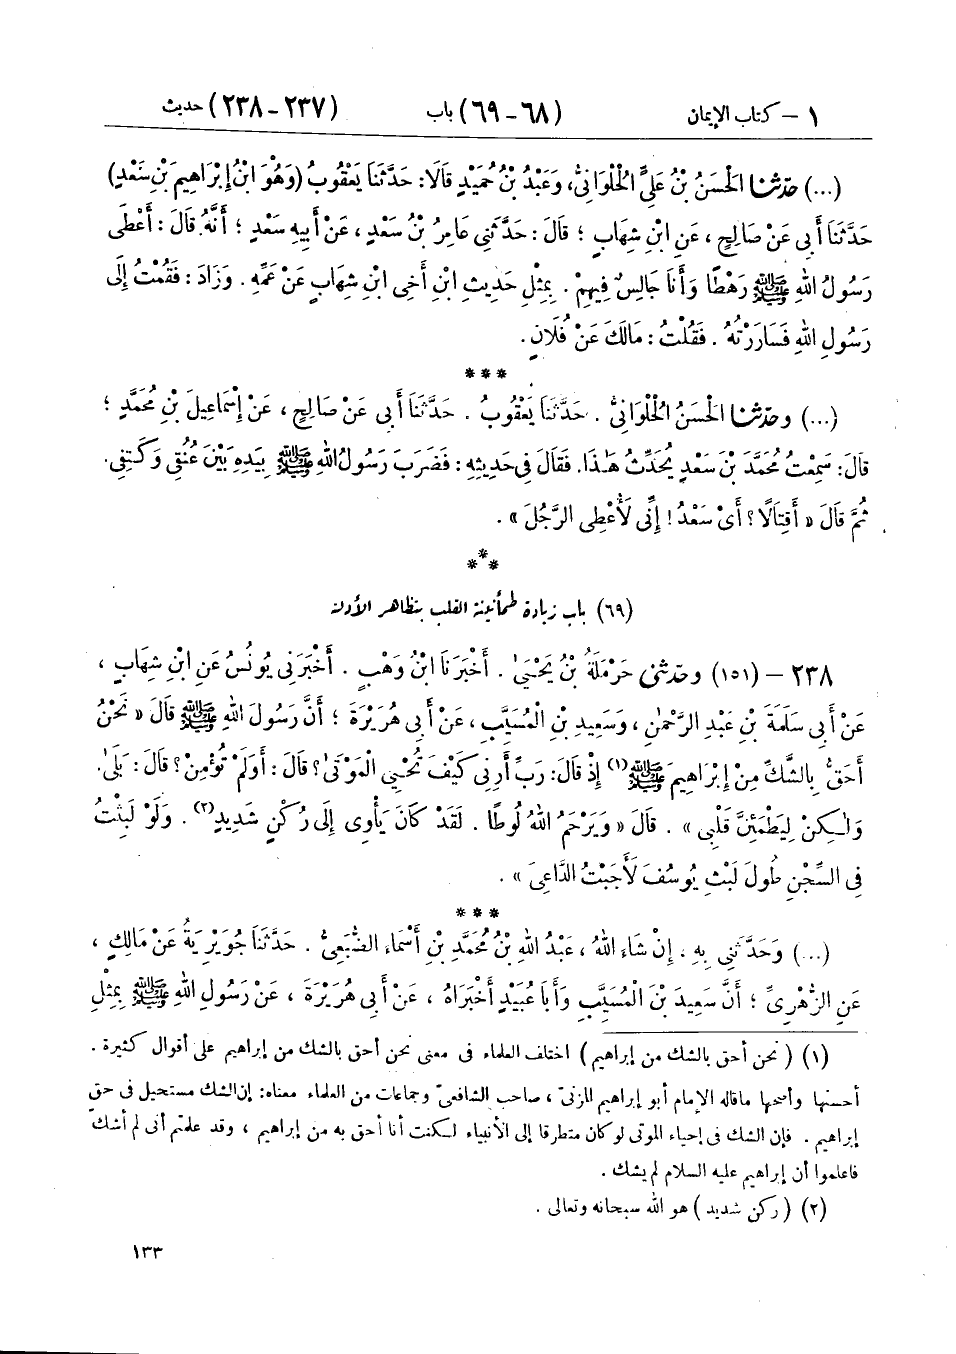 ١ – كتاب الإيمان (٦٨-٦٩) باب (٢٣٧-٢٣٨) حديث
(...) حدّثنا الْحَسَنُ بْنُ عَلِيٍّ الْحُلْوَانِيُّ، وَعَبْدُ بْنُ حُمَيْدٍ قَالَا: حَدَّثَنَا يَعْقُوبُ (وَهُوَ ابْنُ إِبْرَاهِيمَ بْنِ سَعْدٍ)
حَدَّثَنَا أَبِي عَنْ صَالِحٍ، عَنِ ابْنِ شِهَابٍ؛ قَالَ: حَدَّثَنِي عَامِرُ بْنُ سَعْدٍ، عَنْ أَبِيهِ سَعْدٍ؛ أَنَّهُ قَالَ: أَعْطَى
رَسُولُ اللهِ ﷺ رَهْطًا وَأَنَا جَالِسٌ فِيهِمْ. بِمِثْلِ حَدِيثِ ابْنِ أَخِي ابْنِ شِهَابٍ عَنْ عَمِّهِ. وَزَادَ: فَقُمْتُ إِلَى
رَسُولِ اللهِ فَسَارَرْتُهُ. فَقُلْتُ: مَالَكَ عَنْ فُلَانٍ.
***
(...) وحدّثنا الْحَسَنُ الْحُلْوَانِيُّ. حَدَّثَنَا يَعْقُوبُ. حَدَّثَنَا أَبِي عَنْ صَالِحٍ، عَنْ إِسْمَاعِيلَ بْنِ مُحَمَّدٍ؛
قَالَ: سَمِعْتُ مُحَمَّدَ بْنَ سَعْدٍ يُحَدِّثُ هَٰذَا. فَقَالَ فِي حَدِيثِهِ: فَضَرَبَ رَسُولُ اللهِ ﷺ بِيَدِهِ بَيْنَ عُنُقِي وَكَتِفِي.
ثُمَّ قَالَ « أَقِتَالًا؟ أَيْ سَعْدُ! إِنِّي لَأُعْطِي الرَّجُلَ ».
***
(٦٩) باب زيادة طمأنينة القلب بتظاهر الأدلة
٢٣٨ – (١٥١) وحدّثني حَرْمَلَةُ بْنُ يَحْيَىٰ. أَخْبَرَنَا ابْنُ وَهْبٍ. أَخْبَرَنِي يُونُسُ عَنِ ابْنِ شِهَابٍ،
عَنْ أَبِي سَلَمَةَ بْنِ عَبْدِ الرَّحْمَٰنِ، وَسَعِيدِ بْنِ الْمُسَيَّبِ، عَنْ أَبِي هُرَيْرَةَ؛ أَنَّ رَسُولَ اللهِ ﷺ قَالَ « نَحْنُ
أَحَقُّ بِالشَّكِّ مِنْ إِبْرَاهِيمَ ﷺ (١) إِذْ قَالَ: رَبِّ أَرِنِي كَيْفَ تُحْيِي الْمَوْتَىٰ؟ قَالَ: أَوَلَمْ تُؤْمِنْ؟ قَالَ: بَلَىٰ.
وَلَٰكِنْ لِيَطْمَئِنَّ قَلْبِي ». قَالَ « وَيَرْحَمُ اللهُ لُوطًا. لَقَدْ كَانَ يَأْوِي إِلَى رُكْنٍ شَدِيدٍ (٢). وَلَوْ لَبِثْتُ
فِي السِّجْنِ طُولَ لَبْثِ يُوسُفَ لَأَجَبْتُ الدَّاعِيَ ».
***
(...) وَحَدَّثَنِي بِهِ، إِنْ شَاءَ اللهُ، عَبْدُ اللهِ بْنُ مُحَمَّدِ بْنِ أَسْمَاءَ الضُّبَعِيُّ. حَدَّثَنَا جُوَيْرِيَةُ عَنْ مَالِكٍ،
عَنِ الزُّهْرِيِّ؛ أَنَّ سَعِيدَ بْنَ الْمُسَيَّبِ وَأَبَا عُبَيْدٍ أَخْبَرَاهُ، عَنْ أَبِي هُرَيْرَةَ، عَنْ رَسُولِ اللهِ ﷺ بِمِثْلِ
(١) (نحن أحق بالشك من إبراهيم) اختلف العلماء في معنى نحن أحق بالشك من إبراهيم على أقوال كثيرة.
أحسنها وأصحها ماقاله الإمام أبو إبراهيم المزنيّ، صاحب الشافعيّ وجماعات من العلماء معناه: إن الشك مستحيل في حق
إبراهيم. فإن الشك في إحياء الموتى لو كان متطرقا إلى الأنبياء لكنت أنا أحق به من إبراهيم، وقد علمتم أني لم أشكّ
فاعلموا أن إبراهيم عليه السلام لم يشك.
(٢) (ركن شديد) هو الله سبحانه وتعالى.
١٣٣